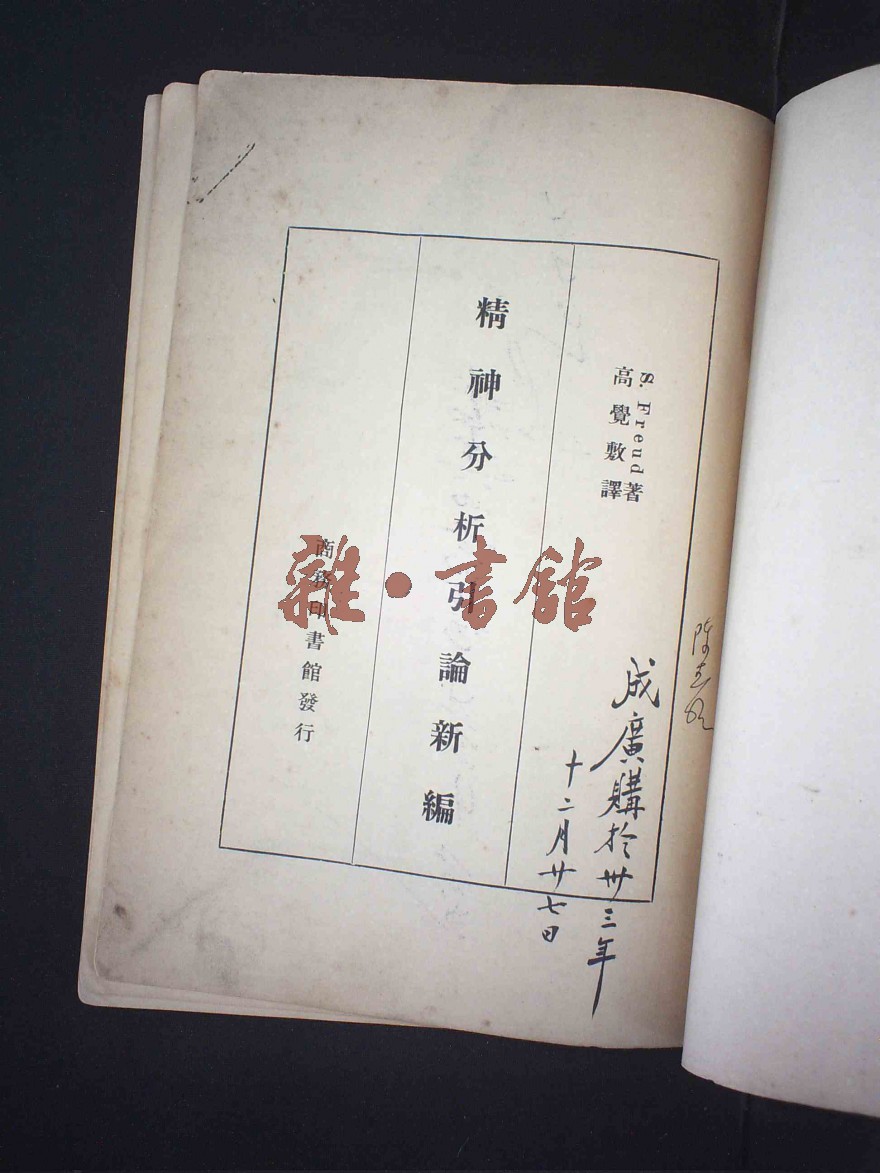 S. Freud著
高覺敷譯
精神分析引論新編
商務印書館發行
雜·書館
成廣購於卅三年
十二月廿七日